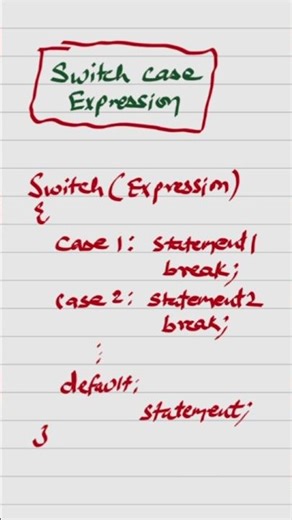 Switch case
Expression
Switch (Expression)
{
case 1: statement1
break;
case 2: statement2
break;
:
default:
statement;
}